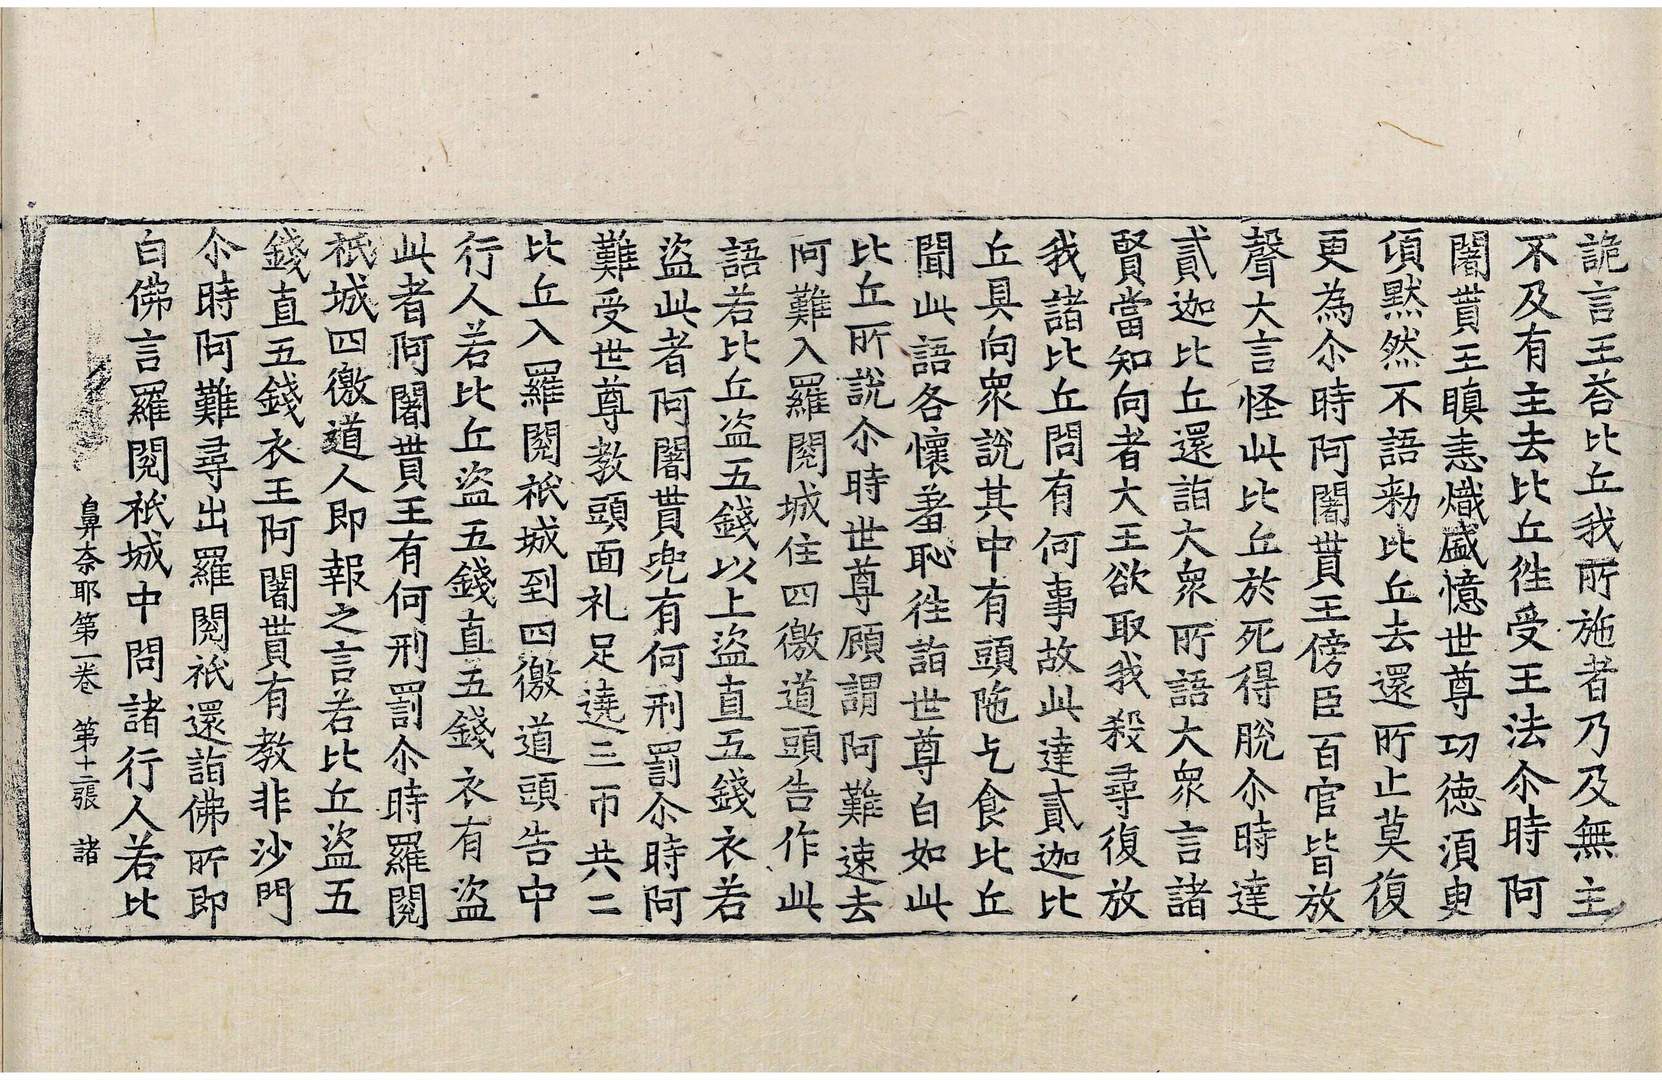 詭言王荅比丘我所施者乃及無主
不及有主去比丘徃受王法尒時阿
闍貰王瞋恚熾盛憶世尊功徳須臾
傾黙然不語勑比丘去還所止莫復
更為尒時阿闍貰王傍臣百官皆放
聲大言怪此比丘於死得脫尒時達
貳迦比丘還詣大衆所語大衆言諸
賢當知向者大王欲取我殺尋復放
我諸比丘問有何事故此達貳迦比
丘具向衆說其中有頭陁乞食比丘
聞此語各懷著恥徃詣世尊白如此
比丘所說尒時世尊顧謂阿難速去
阿難入羅閱城住四徼道頭告作此
語若比丘盗五錢以上盗直五錢衣若
盗此者阿闍貰兜有何刑罰尒時阿
難受世尊教頭面礼足遶三帀共二
比丘入羅閱祇城到四徼道頭告中
行人若比丘盗五錢直五錢衣有盗
此者阿闍貰王有何刑罰尒時羅閱
祇城四徼道人即報之言若比丘盗五
錢直五錢衣王阿闍貰有教非沙門
尒時阿難尋出羅閱祇還詣佛所即
白佛言羅閱祇城中問諸行人若比
鼻奈耶第一卷 第十二張 諸